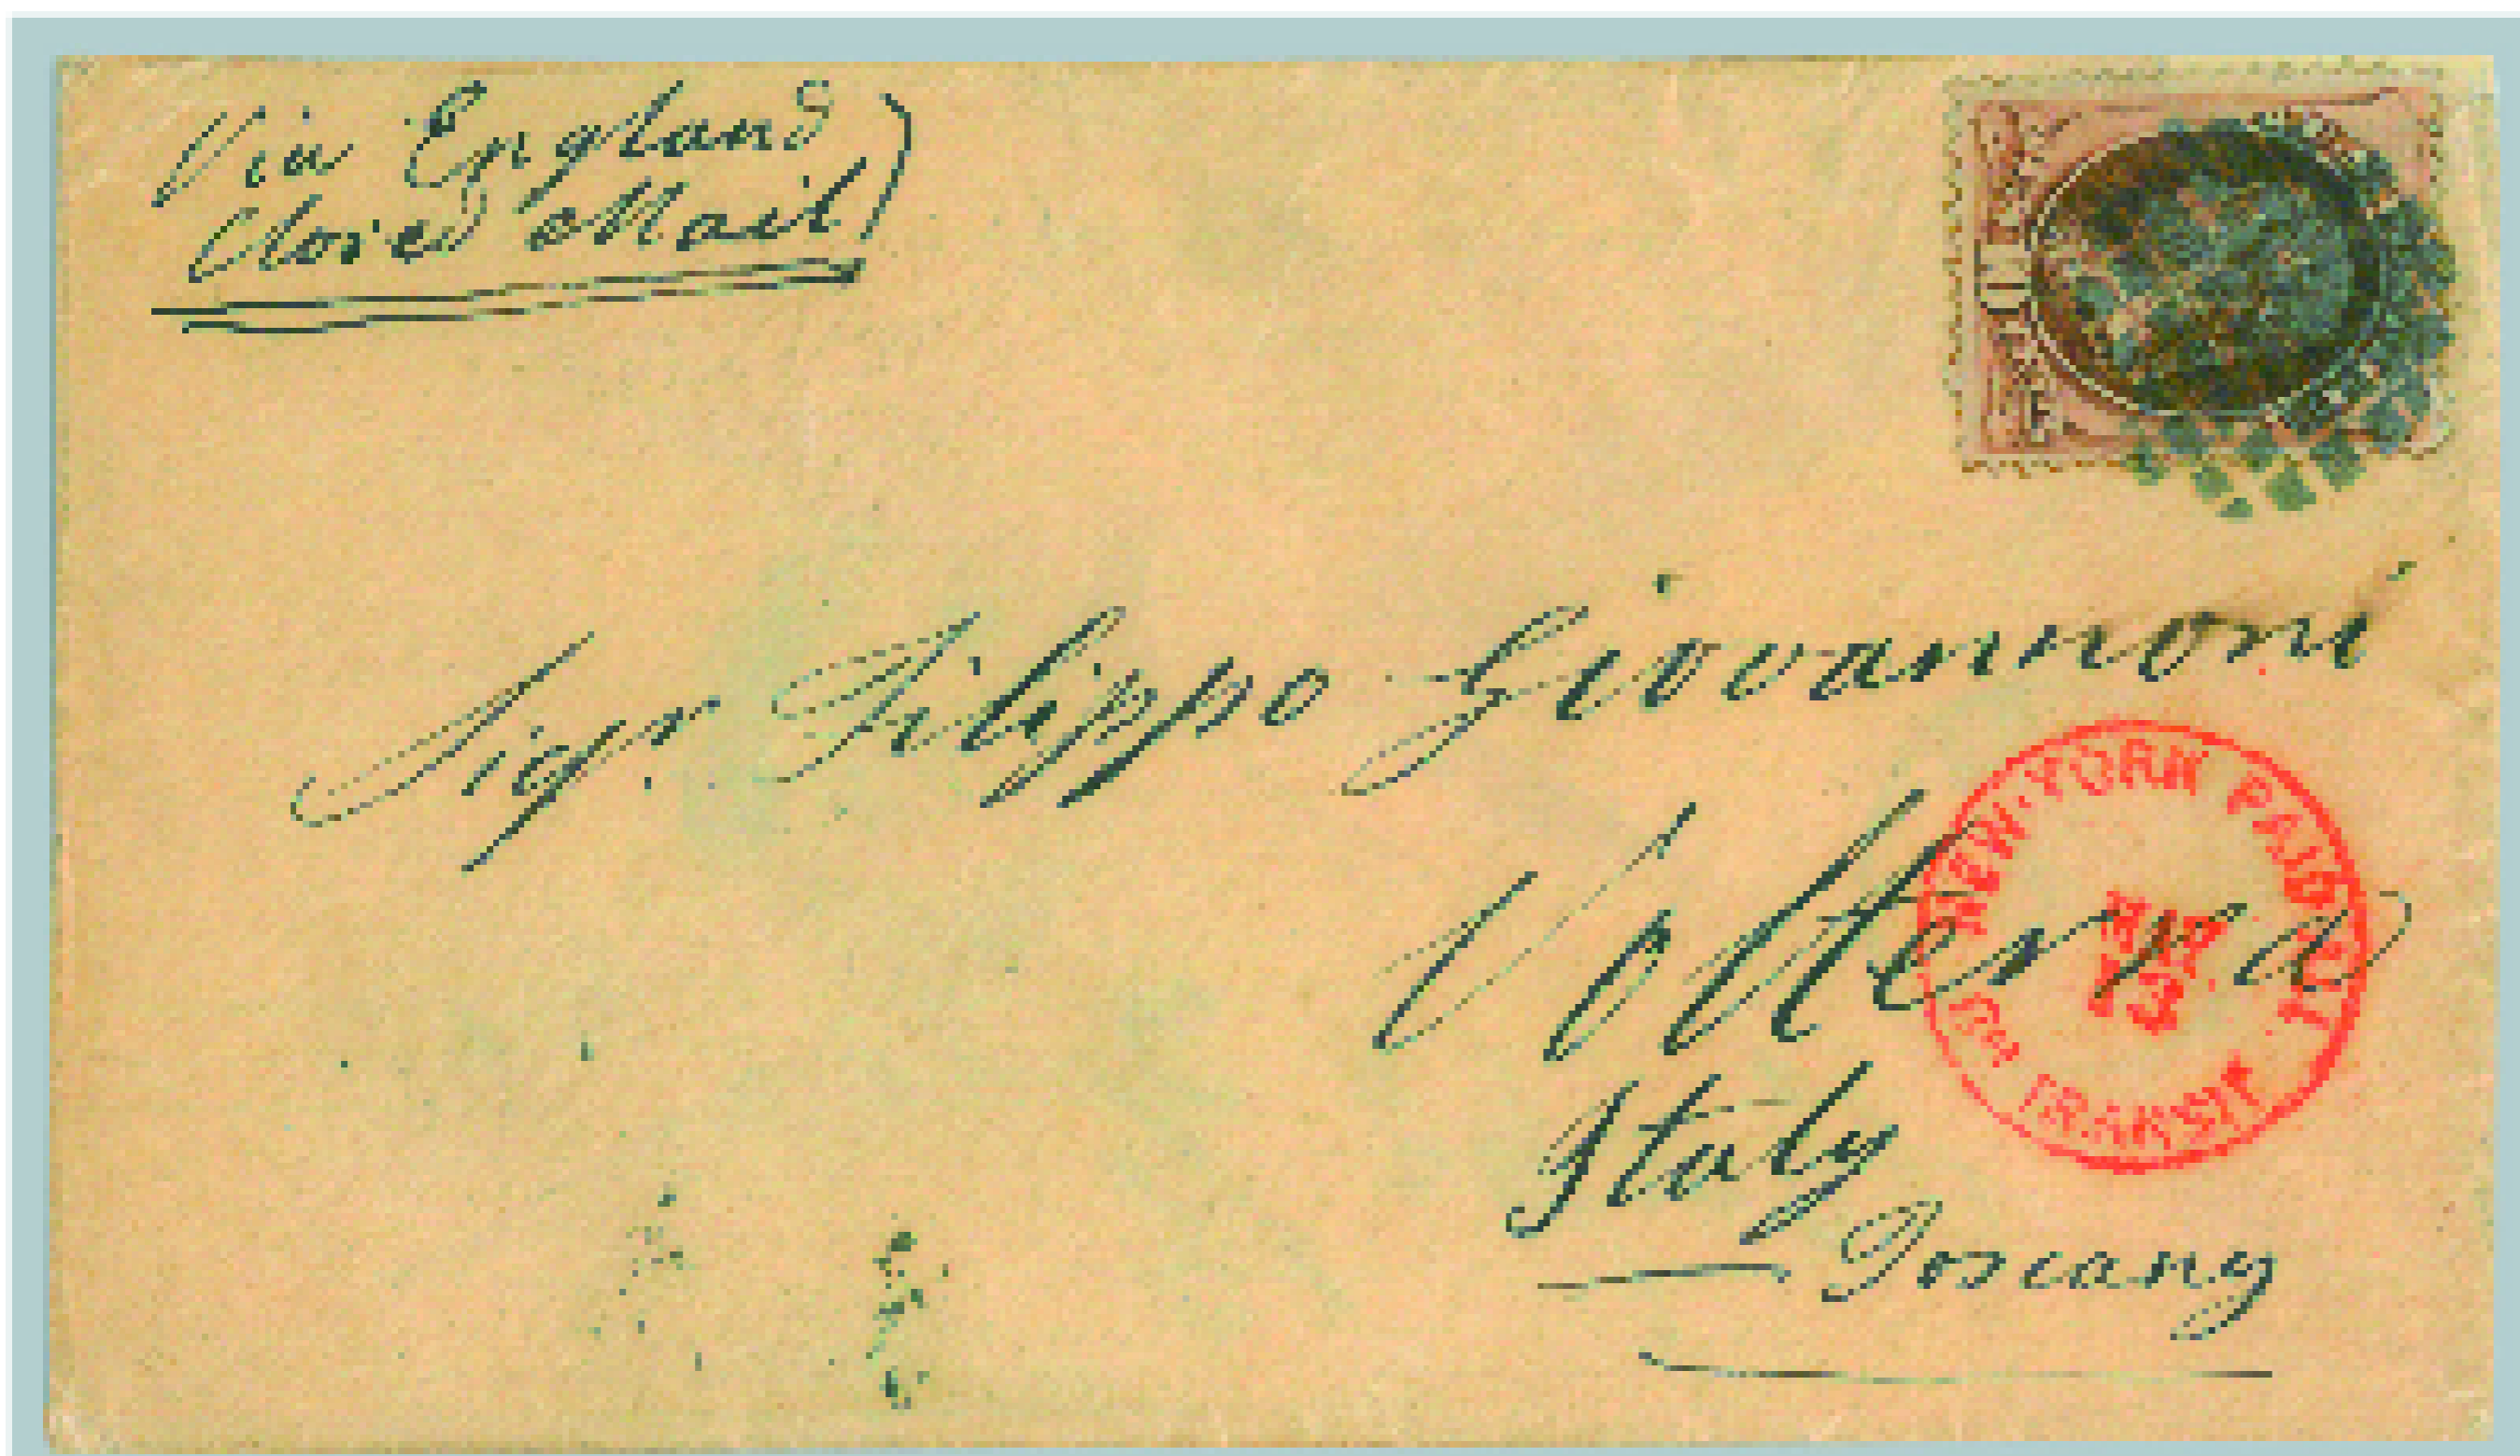 Via England
Closed Mail
Sigr. Filippo Giovannoni
Volterra
Italy
Toscany
NEW-YORK PAID ALL
Br TRANSIT
MAR
13